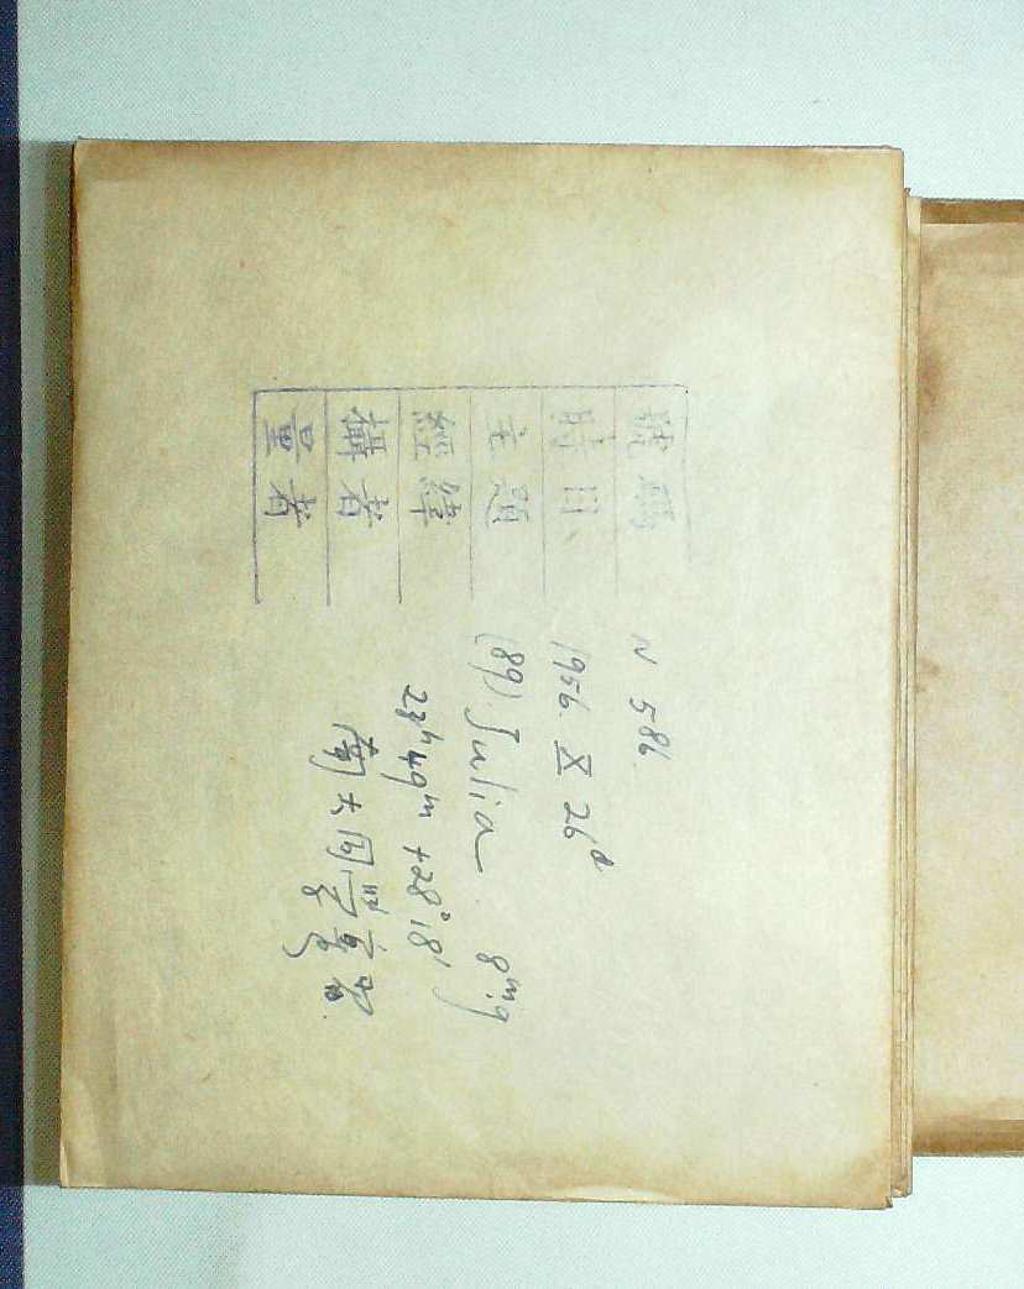 號碼 N 586
時日 1956. X 26d
主題 (89) Julia 8m.9
經緯 23h49m +28°18'
攝者
量者